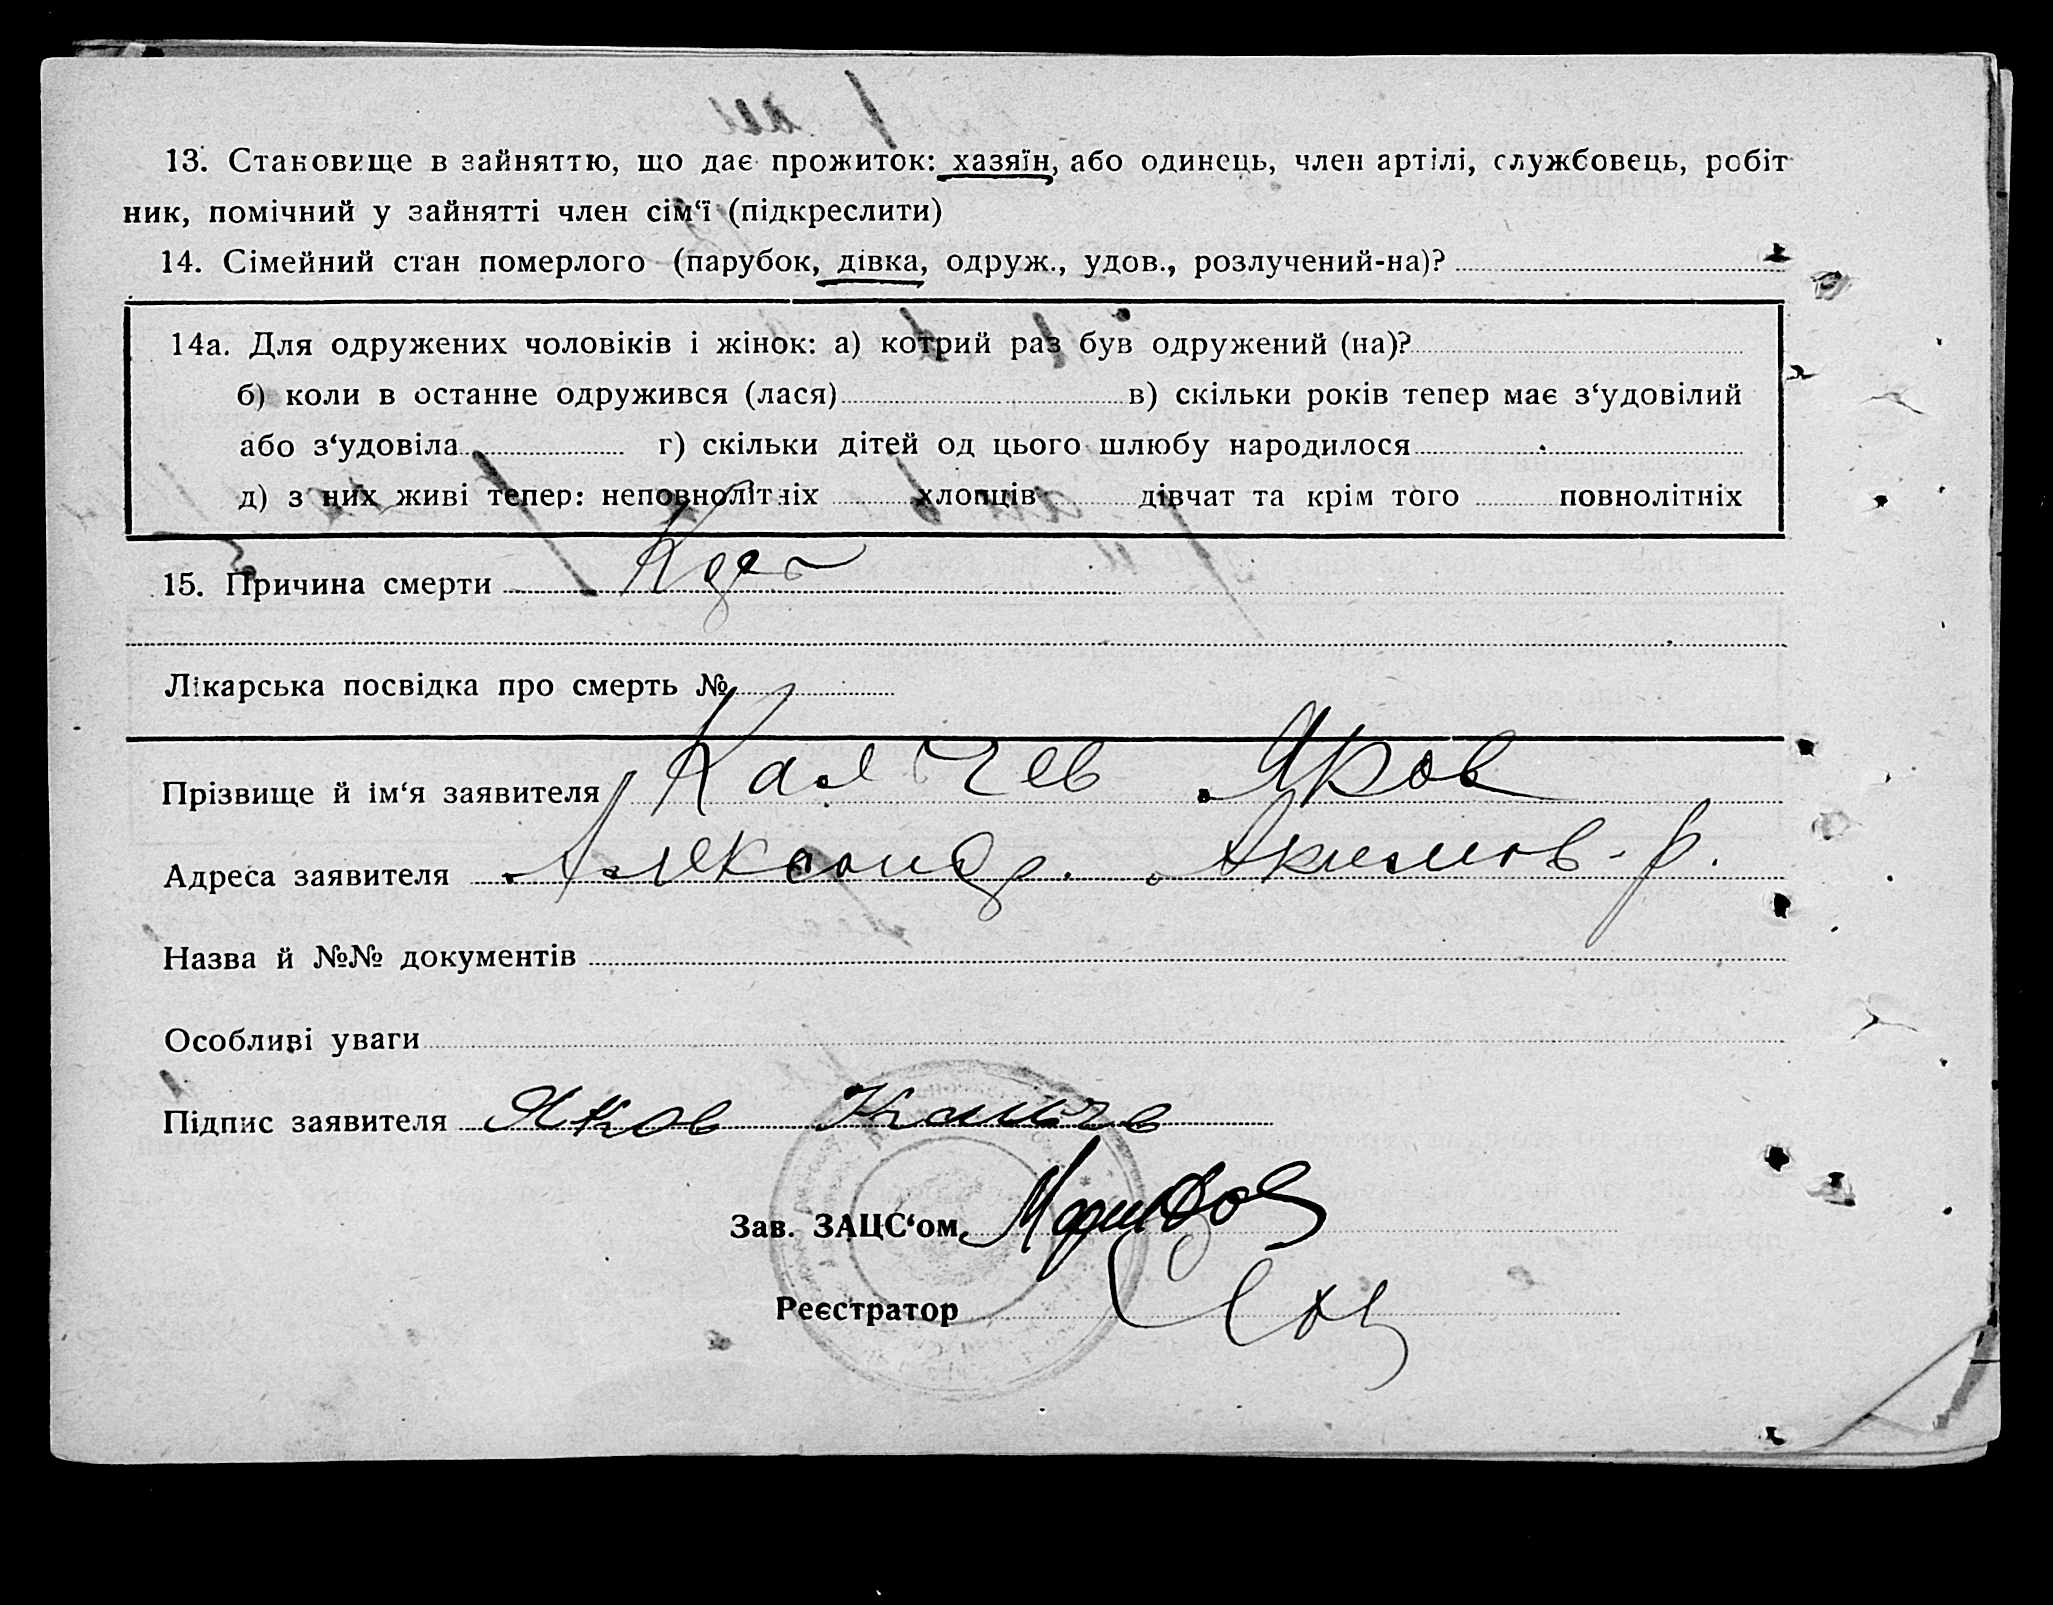 13. Становище в зайняттю, що дає прожиток: хазяїн, або одинець, член артілі, службовець, робіт
ник, помічний у зайнятті член сім‘ї (підкреслити)
14. Сімейний стан померлого (парубок, дівка, одруж., удов., розлучений-на)?
14а. Для одружених чоловіків і жінок: а) котрий раз був одружений (на)?
б) коли в останне одружився (лася) в) скільки років тепер має з‘удовілий
або з‘удовіла г) скільки дітей од цього шлюбу народилося
д) з них живі тепер: неповнолітніх хлопців дівчат та крім того повнолітніх
15. Причина смерти
Лікарська посвідка про смерть №
Прізвище й ім‘я заявителя Калчев Яков
Адреса заявителя Александр. Акимов-р.
Назва й №№ документів
Особливі уваги
Підпис заявителя Яков
Зав. ЗАЦС‘ом
Реєстратор